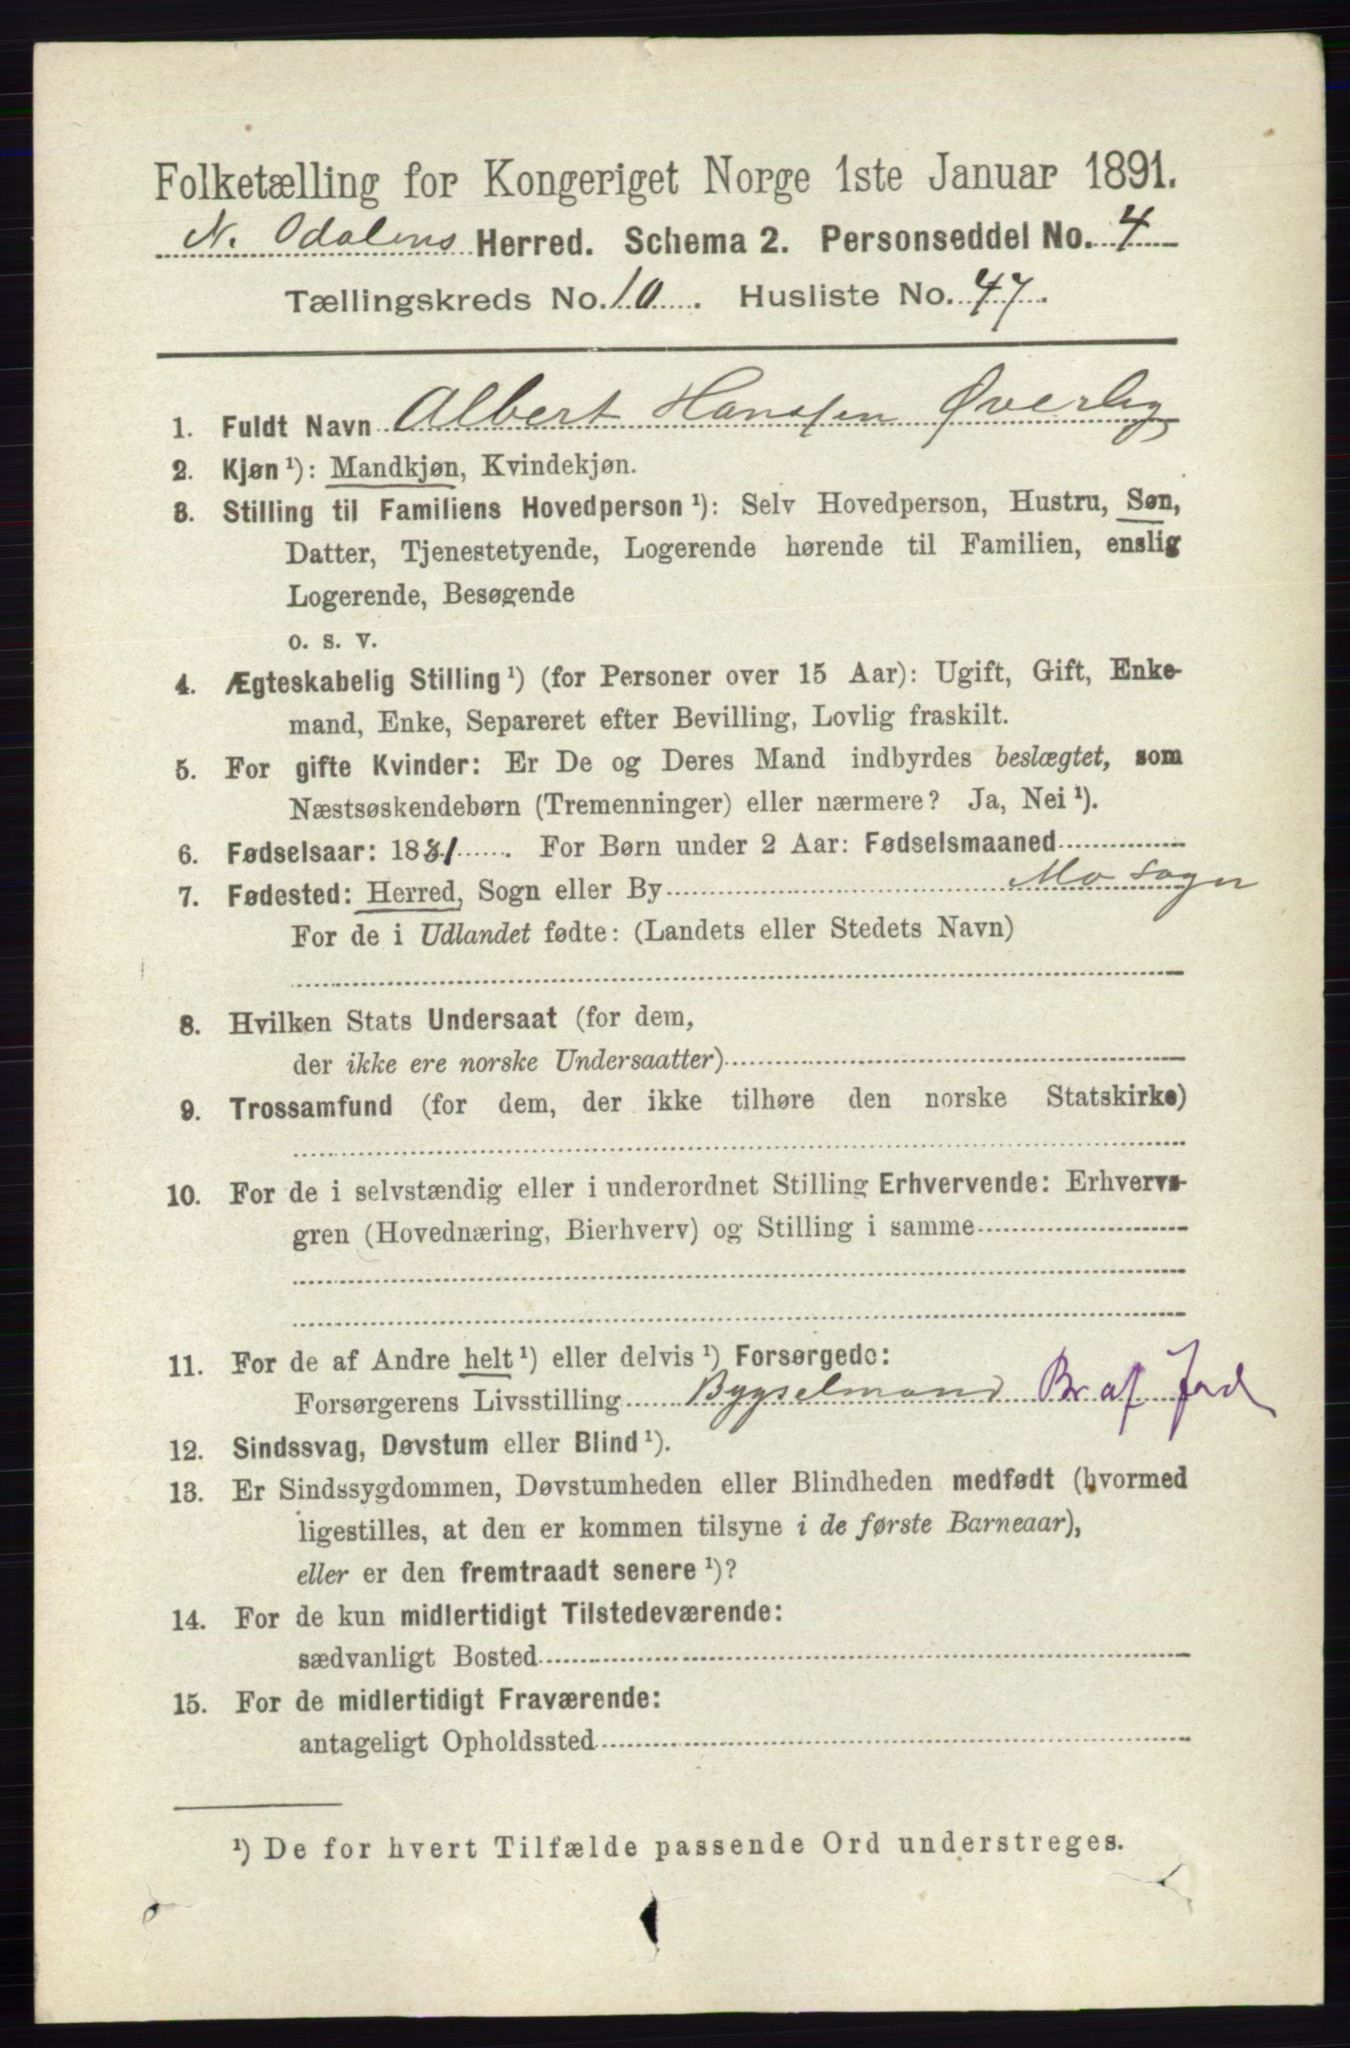 Folketælling for Kongeriget Norge 1ste Januar 1891.
N. Odalens Herred. Schema 2. Personseddel No. 4
Tællingskreds No. 10. Husliste No. 47.
1. Fuldt Navn Albert Hansen Øverby
2. Kjøn ¹): Mandkjøn, Kvindekjøn.
3. Stilling til Familiens Hovedperson ¹): Selv Hovedperson, Hustru, Søn,
Datter, Tjenestetyende, Logerende hørende til Familien, enslig
Logerende, Besøgende
o. s. v.
4. Ægteskabelig Stilling ¹) (for Personer over 15 Aar): Ugift, Gift, Enke-
mand, Enke, Separeret efter Bevilling, Lovlig fraskilt.
5. For gifte Kvinder: Er De og Deres Mand indbyrdes beslægtet, som
Næstsøskendebørn (Tremenninger) eller nærmere? Ja, Nei ¹).
6. Fødselsaar: 1881. For Børn under 2 Aar: Fødselsmaaned
7. Fødested: Herred, Sogn eller By Mo Sogn
For de i Udlandet fødte: (Landets eller Stedets Navn)
8. Hvilken Stats Undersaat (for dem,
der ikke ere norske Undersaatter)
9. Trossamfund (for dem, der ikke tilhøre den norske Statskirke)
10. For de i selvstændig eller i underordnet Stilling Erhvervende: Erhvervs-
gren (Hovednæring, Bierhverv) og Stilling i samme
11. For de af Andre helt ¹) eller delvis ¹) Forsørgede:
Forsørgerens Livsstilling Bygselmand Br af Jord
12. Sindssvag, Døvstum eller Blind ¹).
13. Er Sindssygdommen, Døvstumheden eller Blindheden medfødt (hvormed
ligestilles, at den er kommen tilsyne i de første Barneaar),
eller er den fremtraadt senere ¹)?
14. For de kun midlertidigt Tilstedeværende:
sædvanligt Bosted
15. For de midlertidigt Fraværende:
antageligt Opholdssted
¹) De for hvert Tilfælde passende Ord understreges.